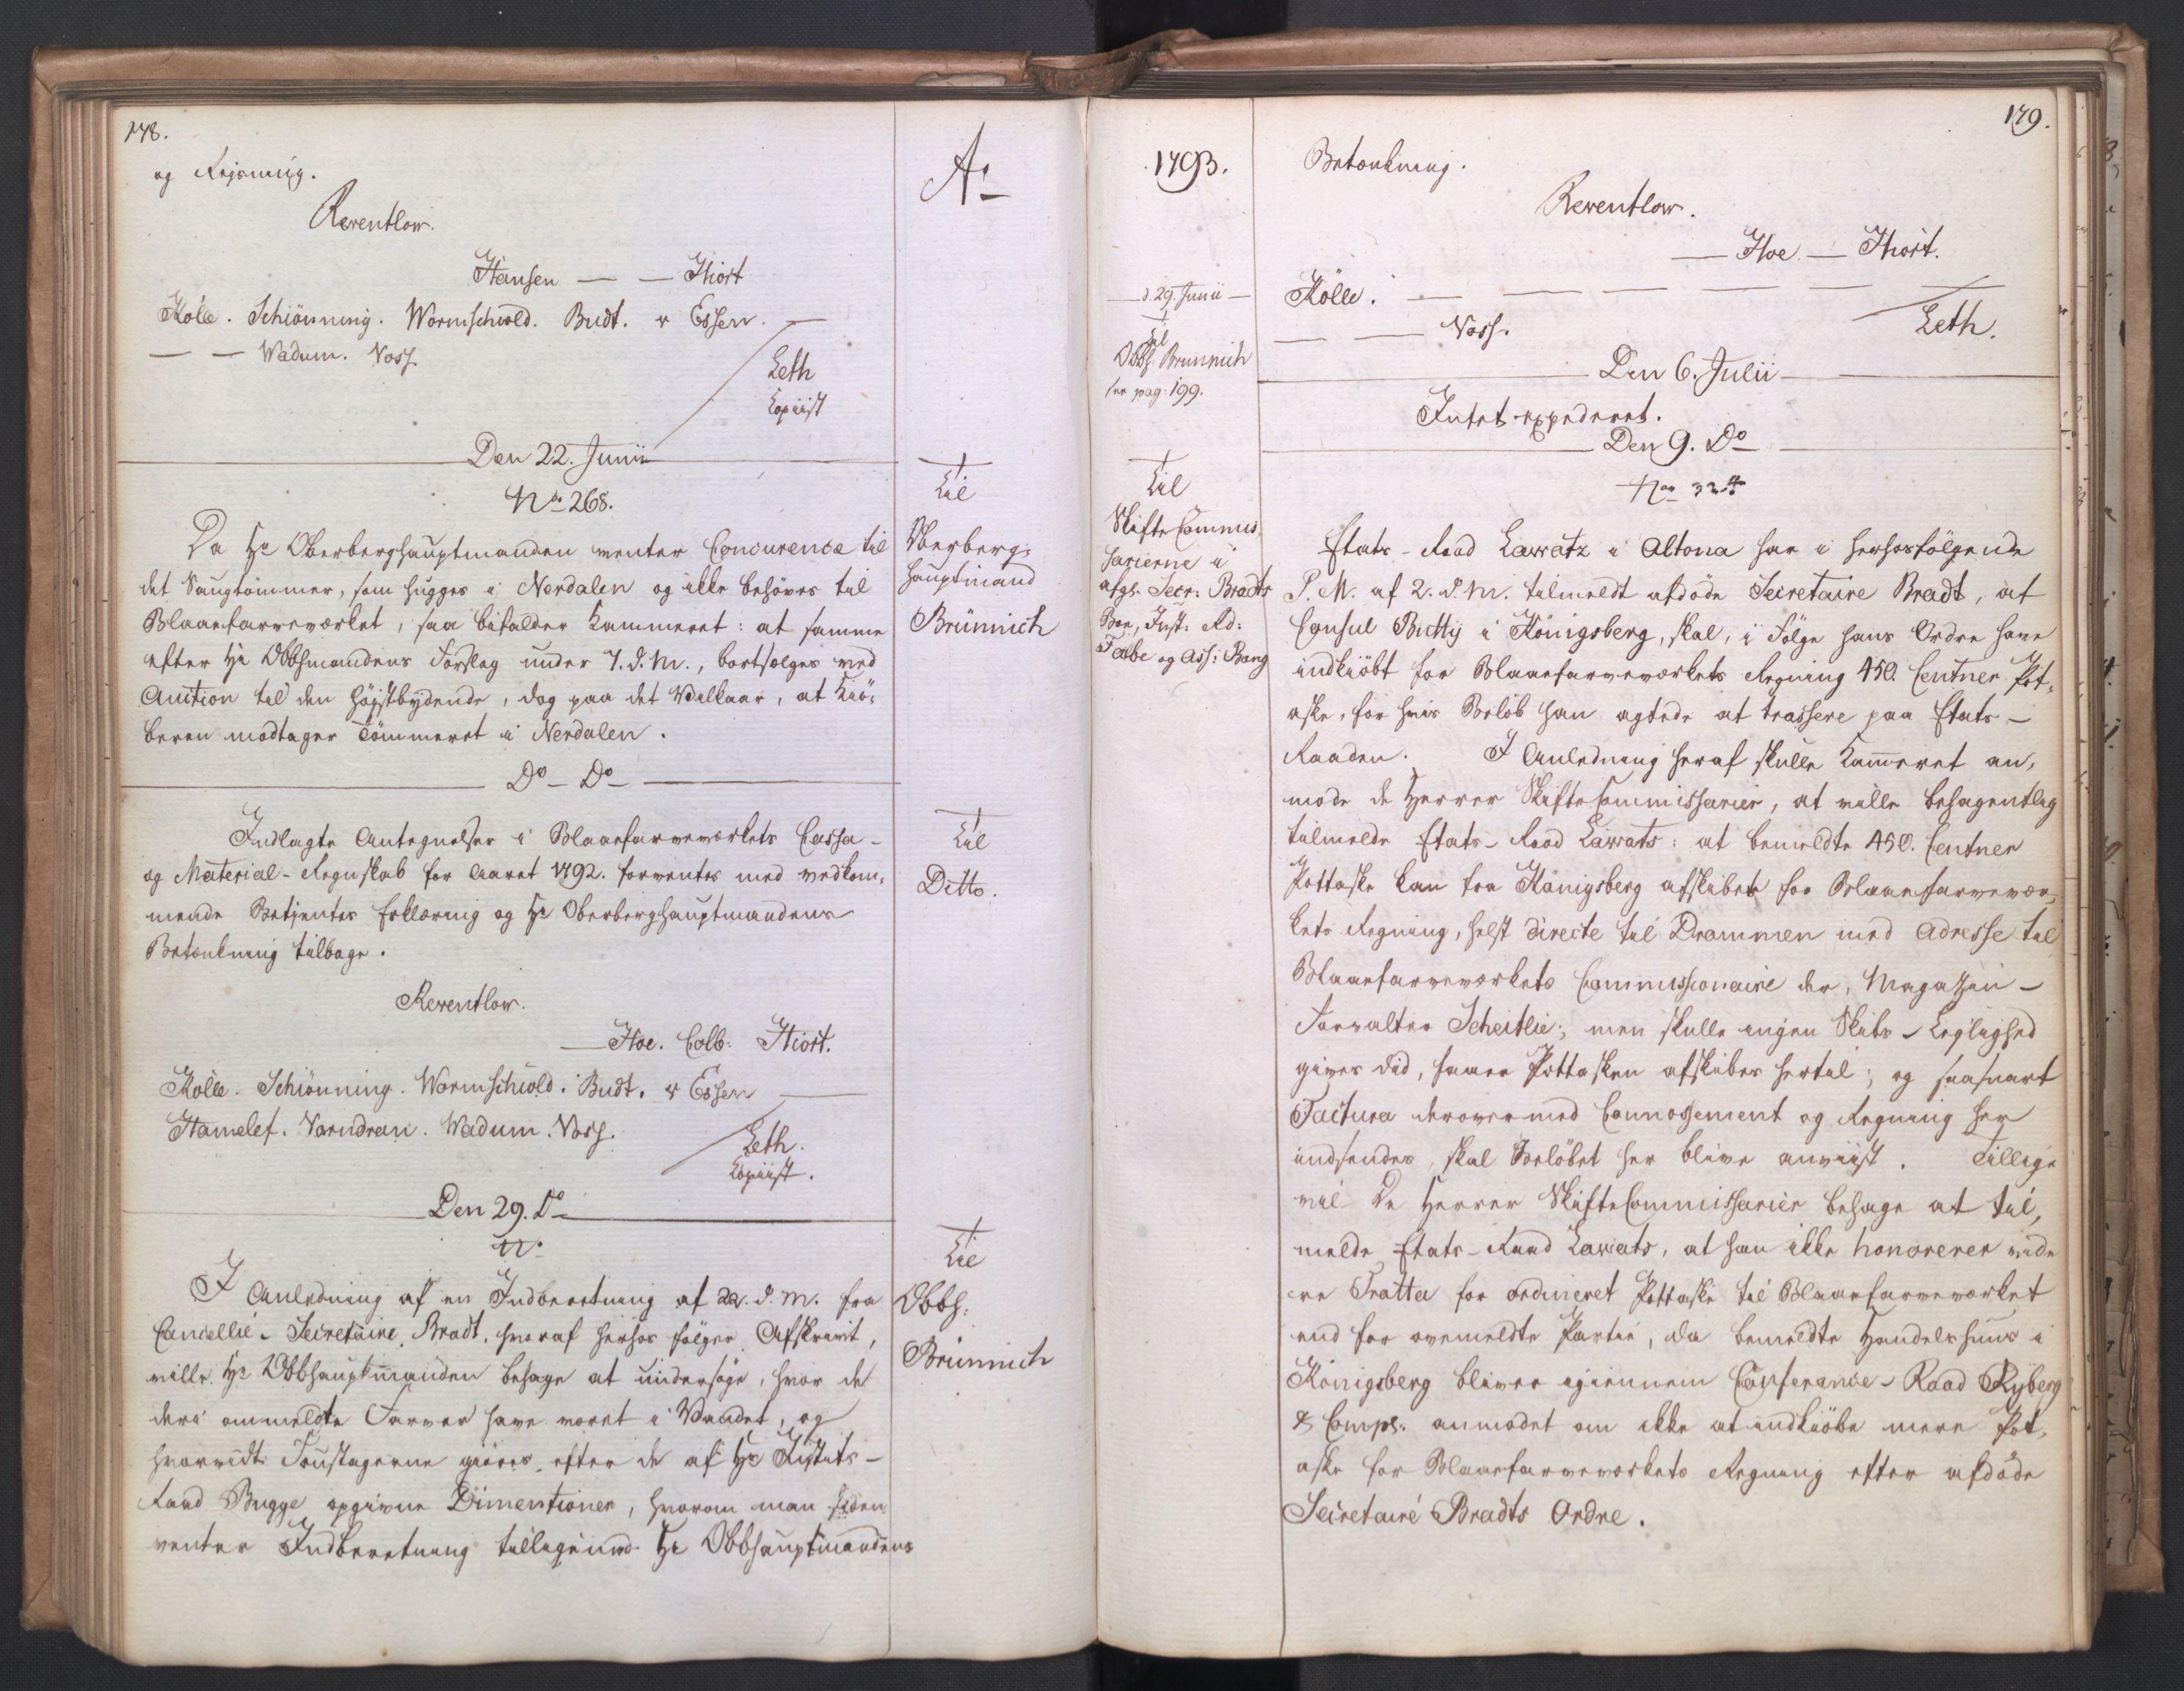 178.
og Rejsning.
Reventlow.
Hansen — — Hiort
Kölle. Schiönning. Wormschiold. Budt. v Essen. —
— — Wadum. Voss.
Leth
Copiist
Ao
Den 22. Junii
No 268.
Til
Oberberg-
hauptmand
Brünnich
Da Hr Oberberghauptmanden venter Concurence til
det Saugtømmer, som hugges i Nordalen og ikke behøves til
Blaaefarveværket, saa bifalder Kammeret: at samme
efter Hr Obbhmandens Forslag under 7. d. M., bortsælges ved
Auction til den højstbydende, dog paa det Vilkaar, at Kiö-
beren modtager Tømmeret i Nordalen.
Do — Do
Til
Ditto.
Indlagte Antegnelser i Blaaefarveværkets Cassa-
og Material-Regnskab for Aaret 1792. forventes med vedkom-
mende Betjentes Erklæring og Hr Oberberghauptmandens
Betænkning tilbage.
Reventlow.
— Hoe. Colb: Hiort.
Kölle. Schiönning. Wormschiold. Budt. v Essen —
Hamelef. Vorndran. Wadum. Voss.
Leth.
Copiist.
Den 29. Do
No
Til
Obbh:
Brünnich
I Anledning af en Indberetning af 22. d. M. fra
Cancellie-Secretaire Bradt, hvoraf herhos følger Afskrivt,
ville Hr Obbhauptmanden behage at undersøge, hvor de
deri ommeldte Farver have været i Vandet, og
hvorvidt Foustagerne giøres efter de af Hr Justits-
Raad Bugge opgivne Dimentioner, hvorom man siden
venter Indberetning tilligemed Hr Obbhauptmandens
179.
1793.
Betænkning.
Reventlow.
— Hoe. — Hiort.
Kölle. — — — — — —
— — Voss.
Leth.
d. 29. Junii
Til
Obbh. Brünnich
see pag: 199.
Den 6. Julii
Intet expederet.
Den 9. Do
No 324
Til
Skifte Commis-
sarierne i
afg: Secr: Bradts
Boe, Just: Rd:
Falbe og Ass: Bang
Etats-Raad Lawatz i Altona har i herhosfølgende
P. M. af 2. d. M. tilmeldt afdøde Secretaire Bradt, at
Consul Butty i Königsberg, skal, i Følge hans Ordre have
indkiöbt for Blaaefarveværkets Regning 450. Centner Pot-
aske, for hvis Beløb han agtede at trassere paa Etats-
Raaden. I Anledning heraf skulle Kammeret an-
mode de Herrer SkifteCommissarier, at ville behagentlig
tilmelde Etats-Raad Lawats: at bemeldte 450. Centner
Pottaske kan fra Königsberg afskibes for Blaaefarvevær-
kets Regning, helst directe til Drammen med Adresse til
Blaaefarveværkets Commissionaire der, Magazin-
Forvalter Scheitlie; men skulle ingen Skibs-Lejlighed
gives did, faaer Pottasken afskibes hertil; og saasnart
Factura derover med Connossement og Regning her
indsendes, skal Beløbet her blive anviist. Tillige
vil De Herrer SkifteCommissarier behage at til-
melde Etats-Raad Lawats, at han ikke honorerer vide
re Tratta for ordineret Pottaske til Blaaefarveværket
end for ovemeldte Partie, da bemeldte Handelshuus i
Königsberg bliver igiennem Conferance-Raad Ryberg
& Comps: anmodet om ikke at indkiöbe mere Pot-
aske for Blaaefarveværkets Regning efter afdøde
Secretaire Bradts Ordre.